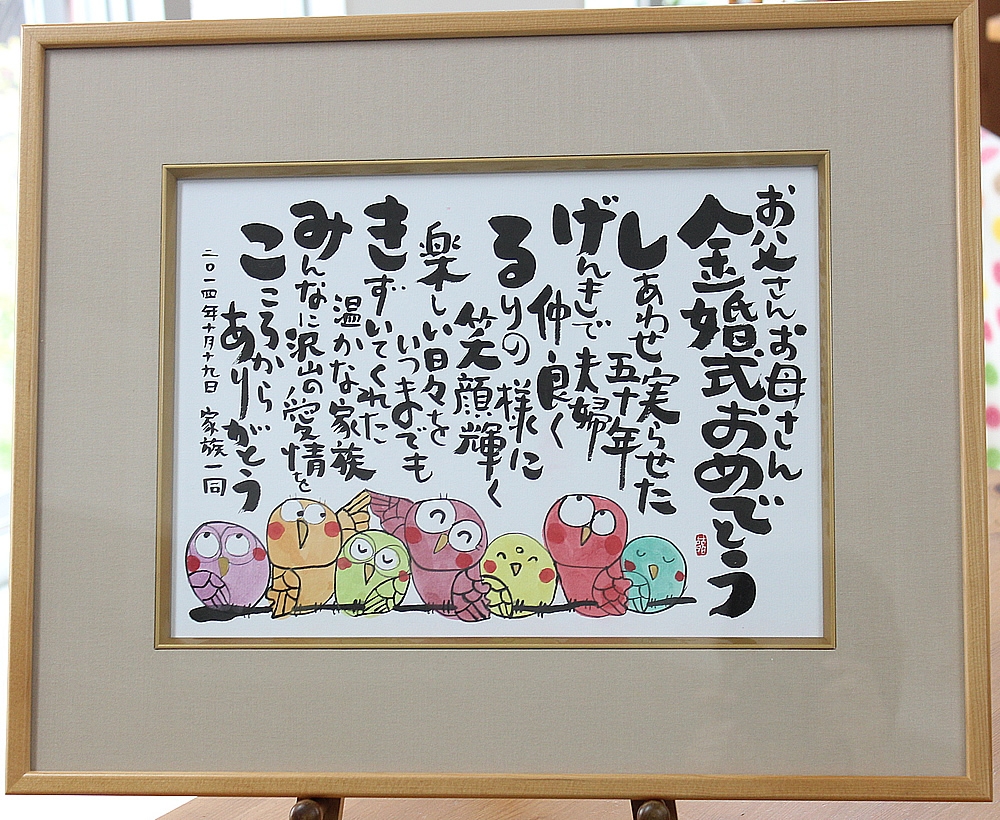 お父さんお母さん
金婚式おめでとう
しあわせ実らせた
五十年
げんきで夫婦
仲良く
るりの様に
笑顔輝く
楽しい日々を
いつまでも
きずいてくれた
温かな家族
みんなに沢山の愛情を
こころから
ありがとう
二〇一四年十月十九日 家族一同